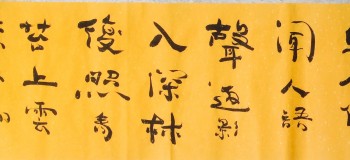 聞人語
聲影
入深林
復照青
苔上雲